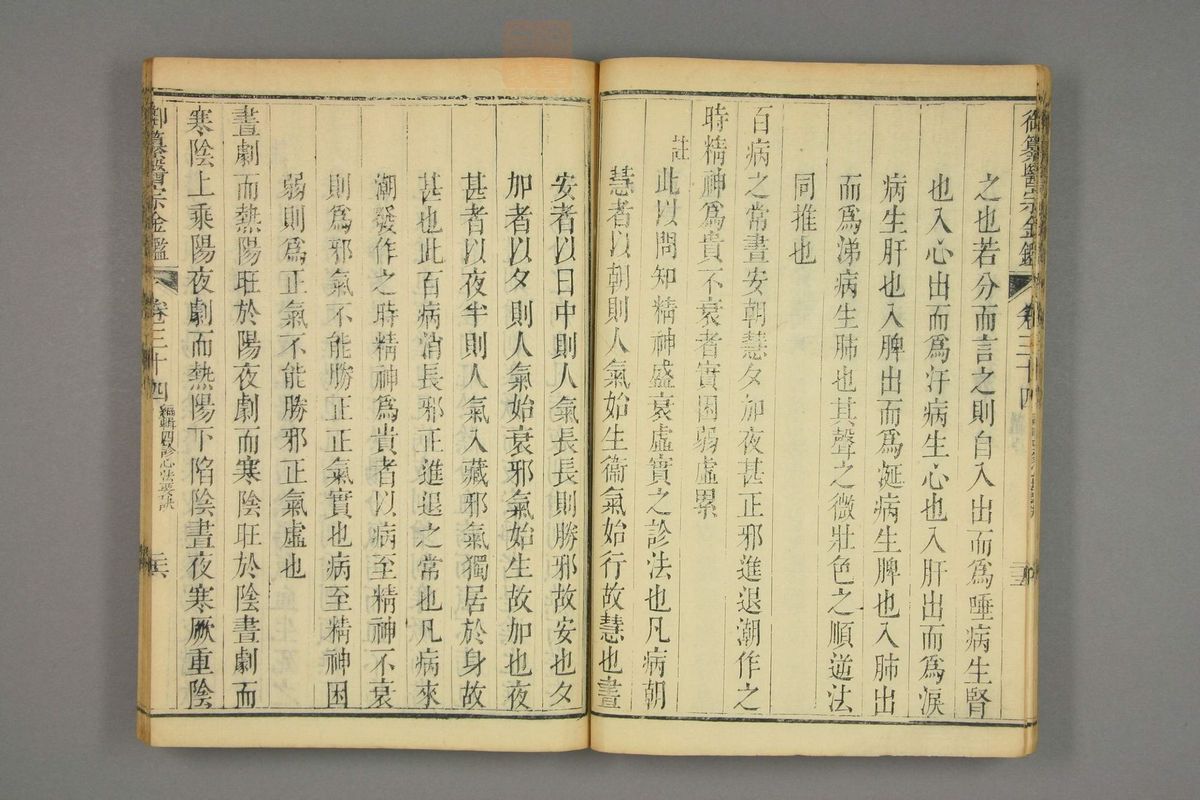 御纂醫宗金鑑 卷三十四
之也若分而言之則自入出而為唾病生腎
也入心出而為汗病生心也入肝出而為淚
病生肝也入脾出而為涎病生脾也入肺出
而為涕病生肺也其聲之微壯色之順逆法
同推也
百病之常晝安朝慧夕加夜甚正邪進退潮作之
時精神為貴不衰者實困弱虛累
註
此以問知精神盛衰虛實之診法也凡病朝
慧者以朝則人氣始生衞氣始行故慧也晝
安者以日中則人氣長長則勝邪故安也夕
加者以夕則人氣始衰邪氣始生故加也夜
甚者以夜半則人氣入藏邪氣獨居於身故
甚也此百病消長邪正進退之常也凡病來
潮發作之時精神為貴者以病至精神不衰
則為邪氣不能勝正正氣實也病至精神困
弱則為正氣不能勝邪正氣虛也
晝劇而熱陽旺於陽夜劇而寒陰旺於陰晝劇而
寒陰上乘陽夜劇而熱陽下陷陰晝夜寒厥重陰
御纂醫宗金鑑 卷三十四 編輯四診心法要訣